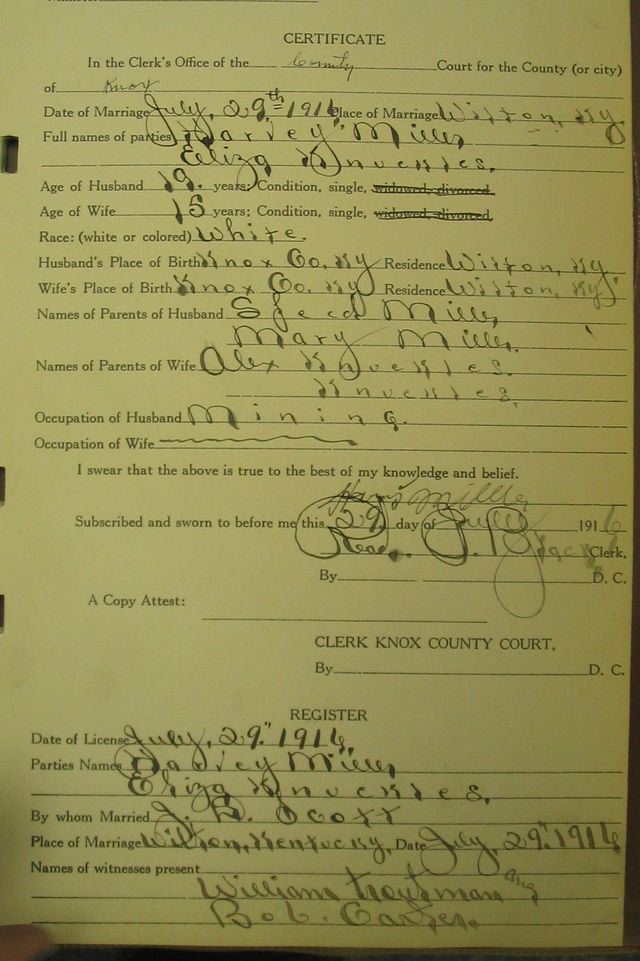 CERTIFICATE
In the Clerk's Office of the County Court for the County (or city)
of Knox
Date of Marriage July, 29th 1916 Place of Marriage Wilton, Ky
Full names of parties Harvey Miller
Eliza Knuckles.
Age of Husband 19. years; Condition, single, widowed, divorced
Age of Wife 15 years; Condition, single, widowed, divorced
Race: (white or colored) White.
Husband's Place of Birth Knox Co. Ky Residence Wilton, Ky
Wife's Place of Birth Knox Co. Ky Residence Wilton, Ky
Names of Parents of Husband Speed Miller
Mary Miller.
Names of Parents of Wife Alex Knuckles.
Knuckles.
Occupation of Husband Mining.
Occupation of Wife
I swear that the above is true to the best of my knowledge and belief.
Miller
Subscribed and sworn to before me this 29 day of July 1916
Read P. Black Clerk.
By D. C.
A Copy Attest:
CLERK KNOX COUNTY COURT,
By D. C.
REGISTER
Date of License July, 29." 1916,
Parties Names Harvey Miller
Eliza Knuckles.
By whom Married J. Scott
Place of Marriage Wilton, Kentucky, Date July, 29." 1916
Names of witnesses present
William Troutman and
Bob. Carter.